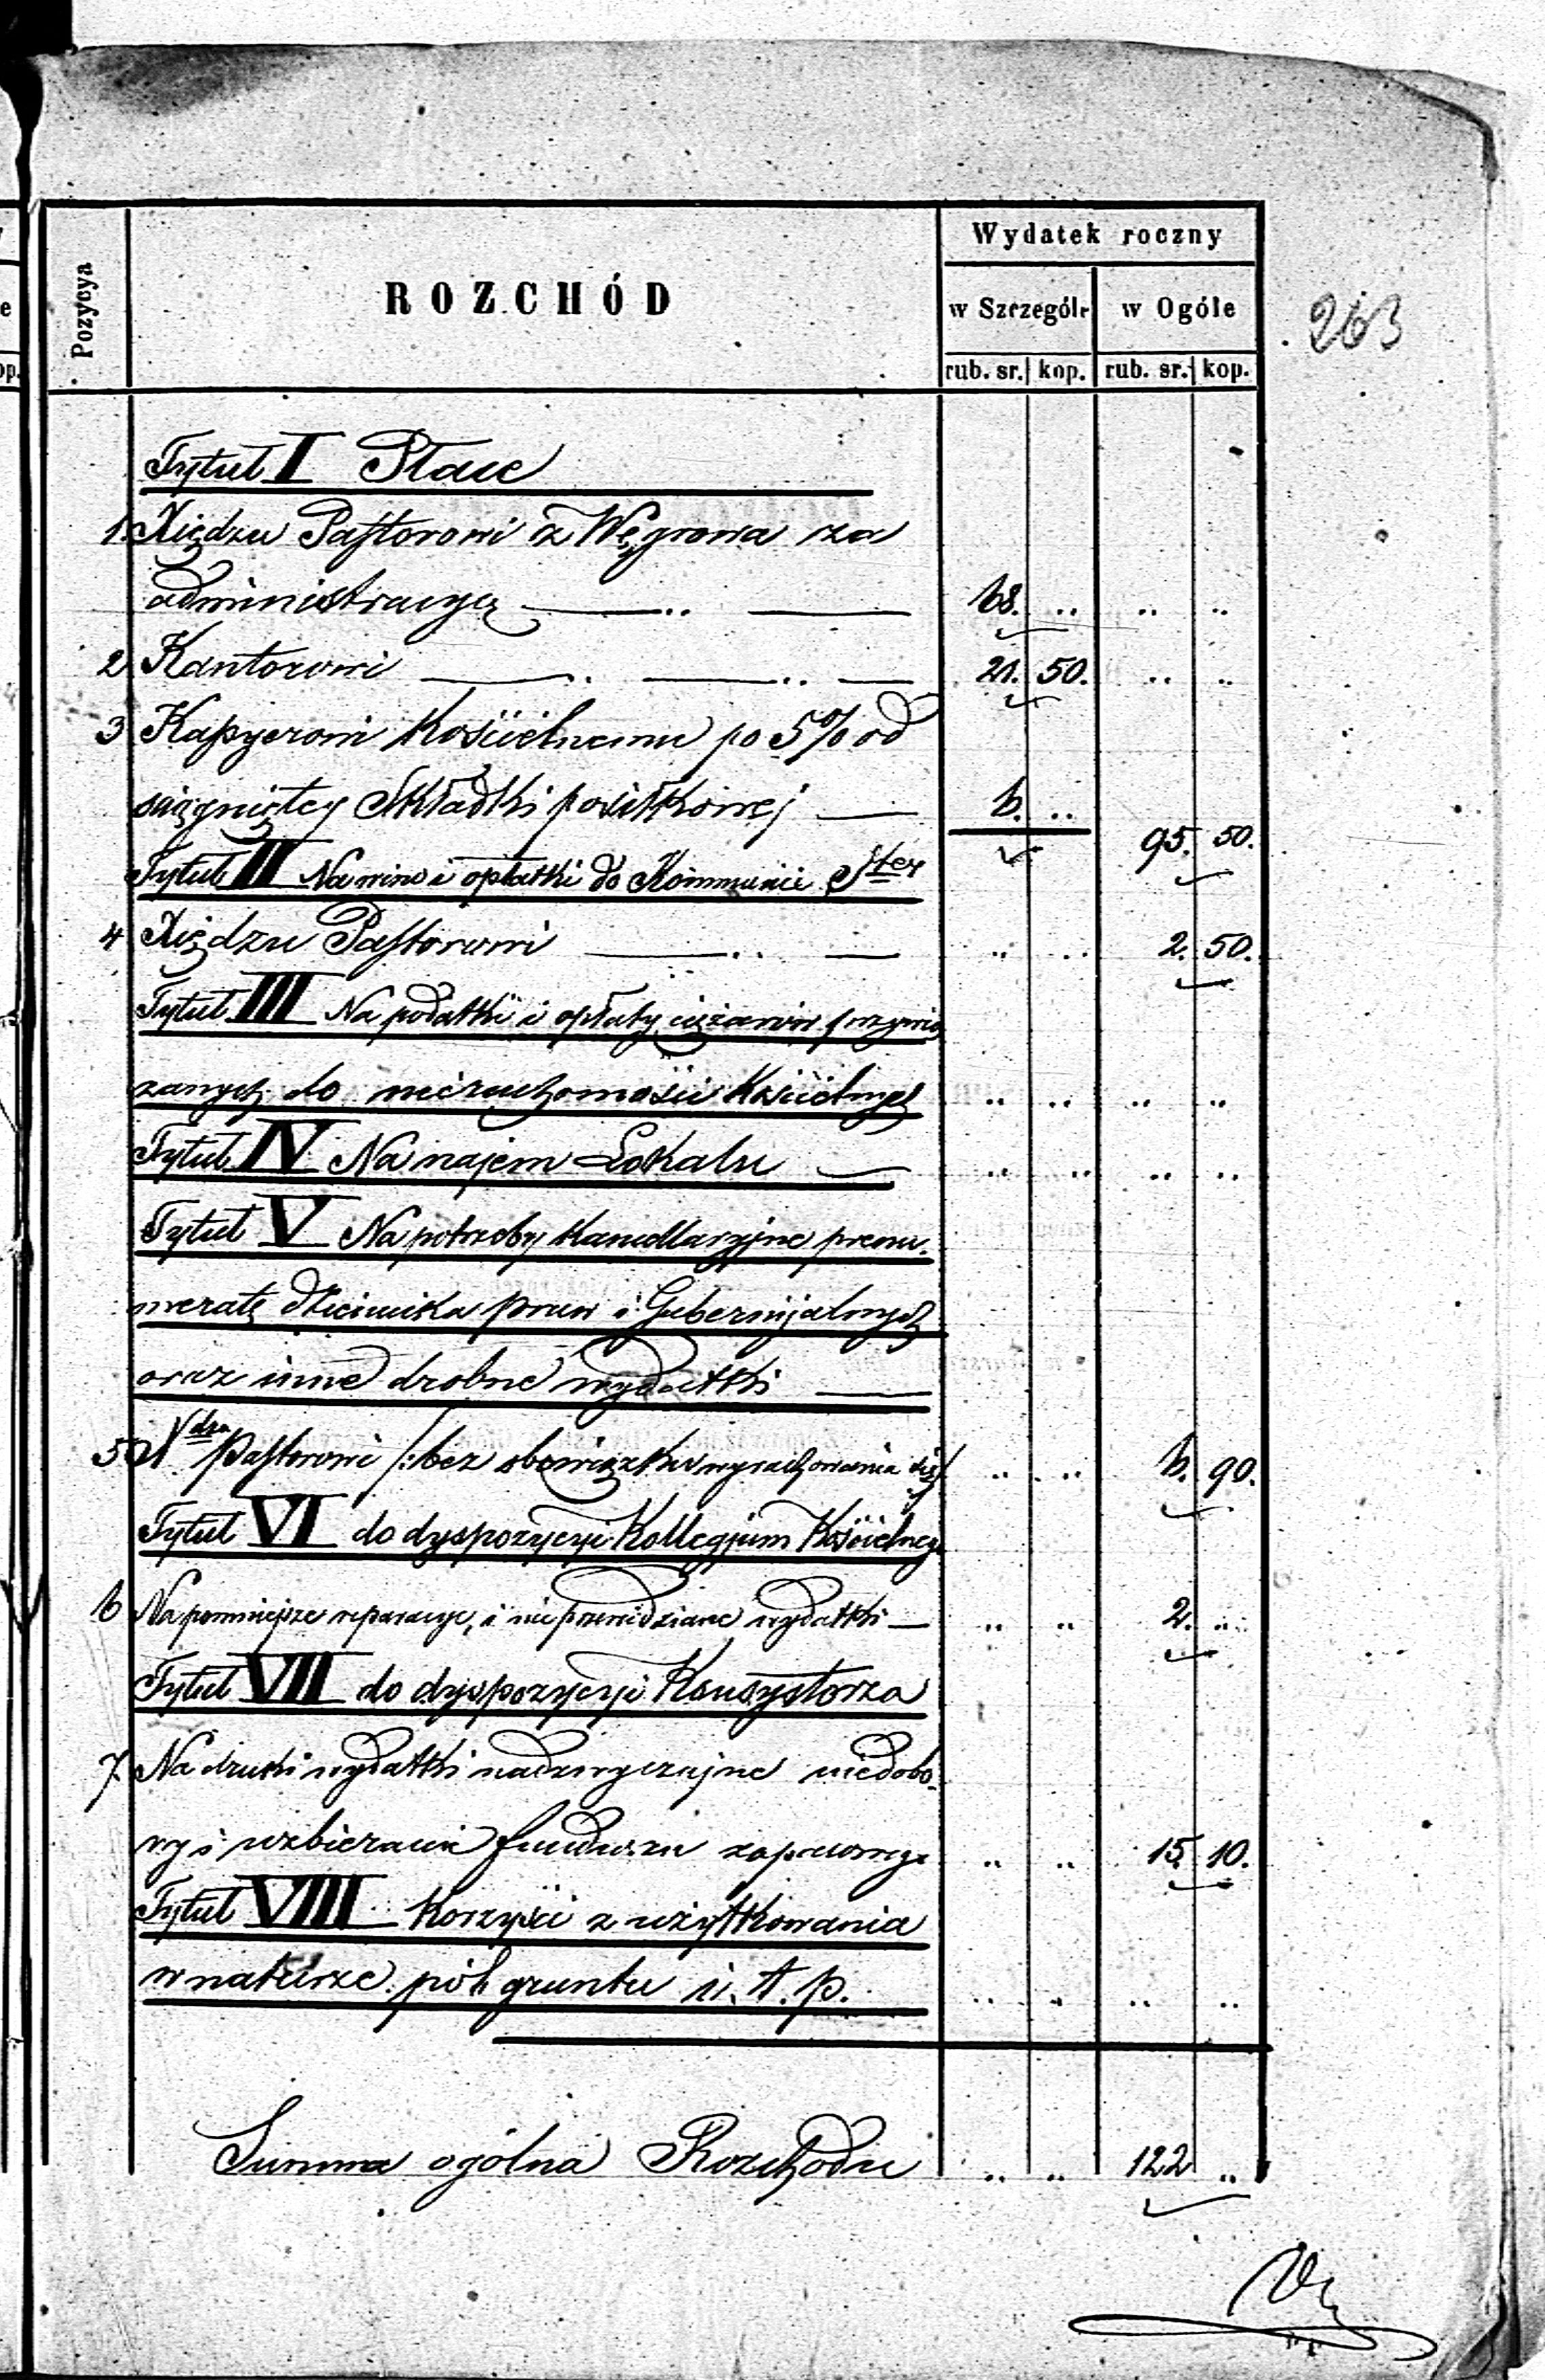 Wydatek roczny
Pozycya
ROZCHÓD
w Szczególe
w Ogóle
263
rub. sr. kop. rub. sr. kop.
Tytuł I Płace
1. Xiędzu Pastorowi z Węgrowa za
administracyę 68. .. .. ..
2 Kantorowi 21. 50. .. ..
3 Kassyerowi Kościelnemu po 5% od
ściągniętey Składki posiłkowej 6. ..
95. 50.
Tytuł II Na wino i opłatki do Kommunii Stej
4 Xiędzu Pastorowi .. .. 2. 50.
Tytuł III Na podatki i opłaty ciężarów przywią
zanych do nieruchomości Kościelnych .. .. .. ..
Tytuł IV Na najem Lokalu .. .. .. ..
Tytuł V Na potrzeby Kancellaryjne prenu-
meratę Dziennika praw i Gubernijalnych
oraz inne drobne wydatki
5 Xdzu Pastorowi /: bez obowiązku wyrachowania się .. .. 6. 90.
Tytuł VI do dyspozycyi Kollegjum Kościelnego
6 Na pomniejsze reparacye, i nieprzewidziane wydatki .. .. 2. ..
Tytuł VII do dyspozycyi Konsystorza
7. Na druki wydatki nadzwyczajne niedobo-
ry i uzbieranie funduszu zapasowego .. .. 15. 10.
Tytuł VIII Korzyści z użytkowania
w naturze pól gruntu i. t. p. .. .. .. ..
Summa ogólna Rozchodu .. .. 122 ..